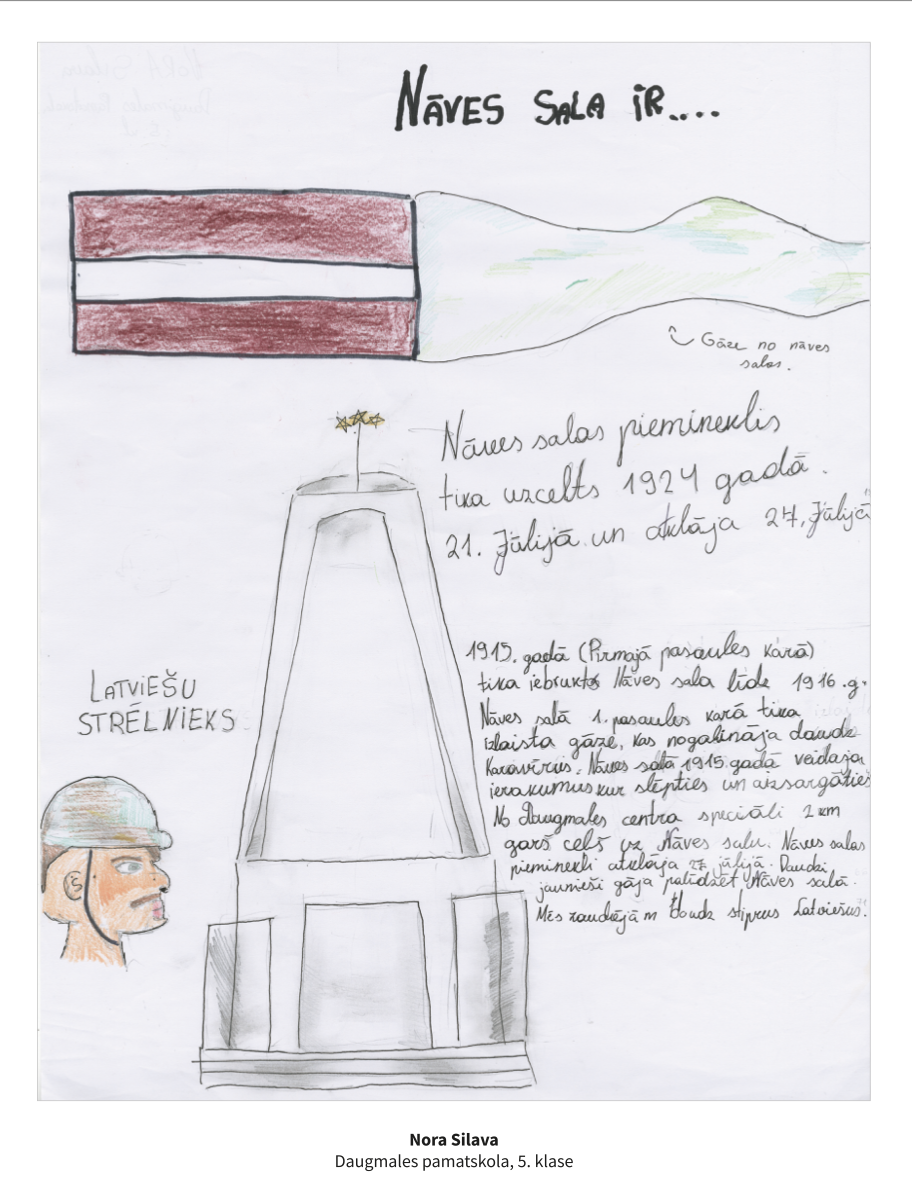 NĀVES SALA IR....
Gāze no nāves
salas.
Nāves salas piemineklis
tika uzcelts 1924 gadā.
21. Jūlijā un atklāja 27, Jūlijā
1915. gadā (Pirmajā pasaules karā)
tika iebrukts Nāves sala līdz 1916.g.
Nāves salā 1. pasaules karā tika
izlaista gāze, kas nogalināja daudz
karavīrus. Nāves salā 1915. gadā veidaja
ierakumus kur slēpties un aizsargāties
No Daugmales centra speciāli 2 km
garš ceļš uz Nāves salu. Nāves salas
pieminekli atklāja 27 jūlijā. Daudzi
jaunieši gāja palīdzēt Nāves salā.
Mēs zaudējām daudz stiprus Latviešus!
LATVIEŠU
STRĒLNIEKS
Nora Silava
Daugmales pamatskola, 5. klase